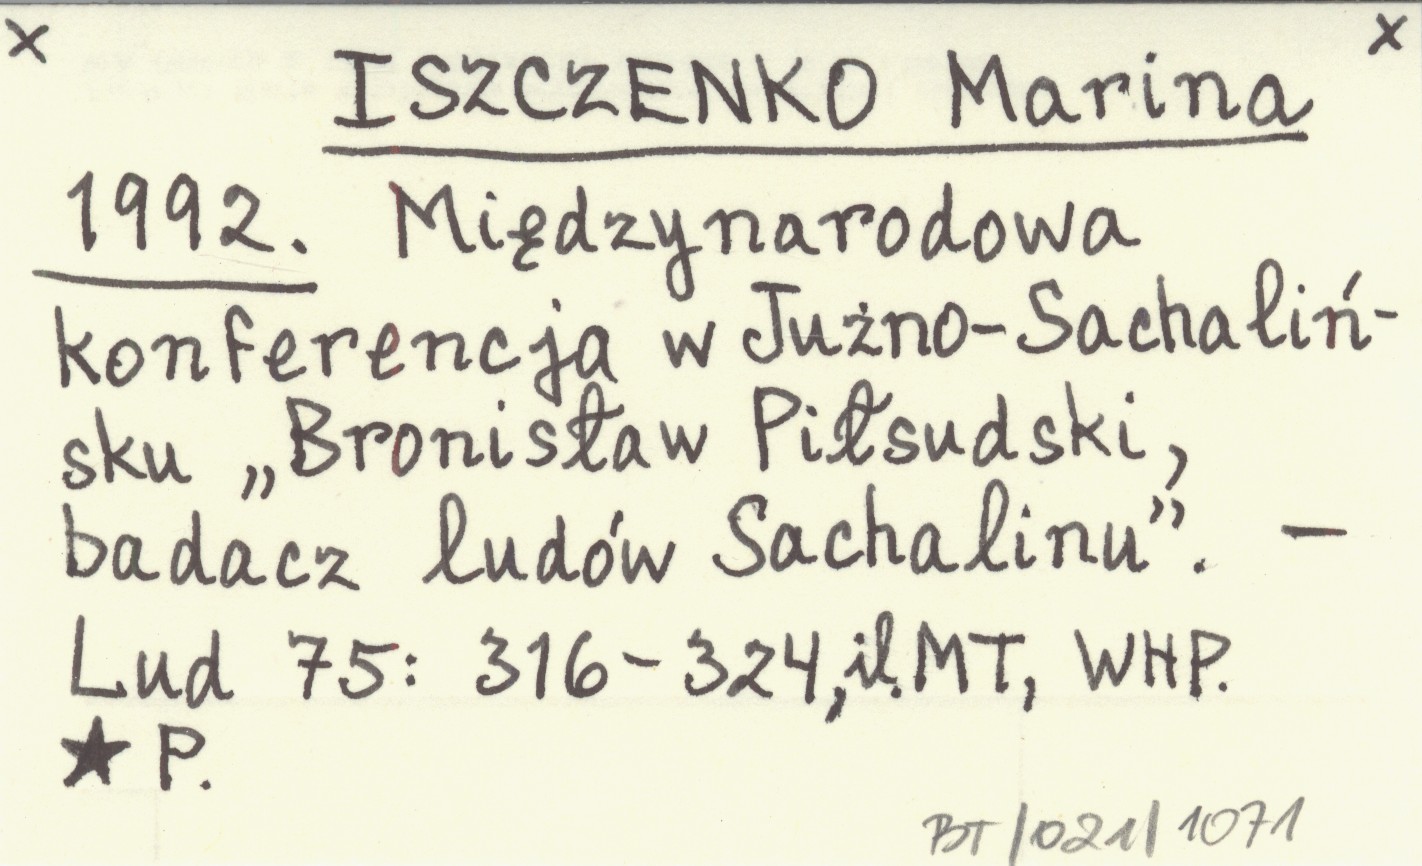 x x
ISZCZENKO Marina
1992. Międzynarodowa
konferencja w Jużno-Sachaliń-
sku „Bronisław Piłsudski,
badacz ludów Sachalinu”. —
Lud 75: 316-324, il. MT, WHP.
★ P.
BT/021/1071